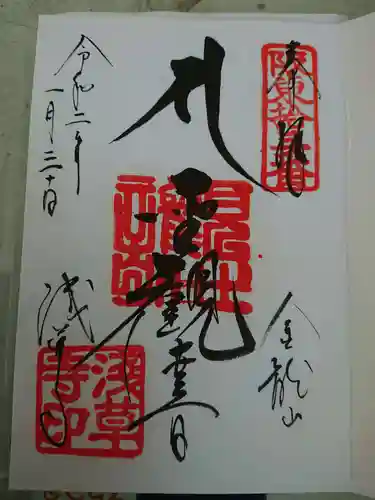 奉拝
坂東拾三番
金龍山
聖観世音
浅草寺
浅草寺印
令和二年
一月三十日